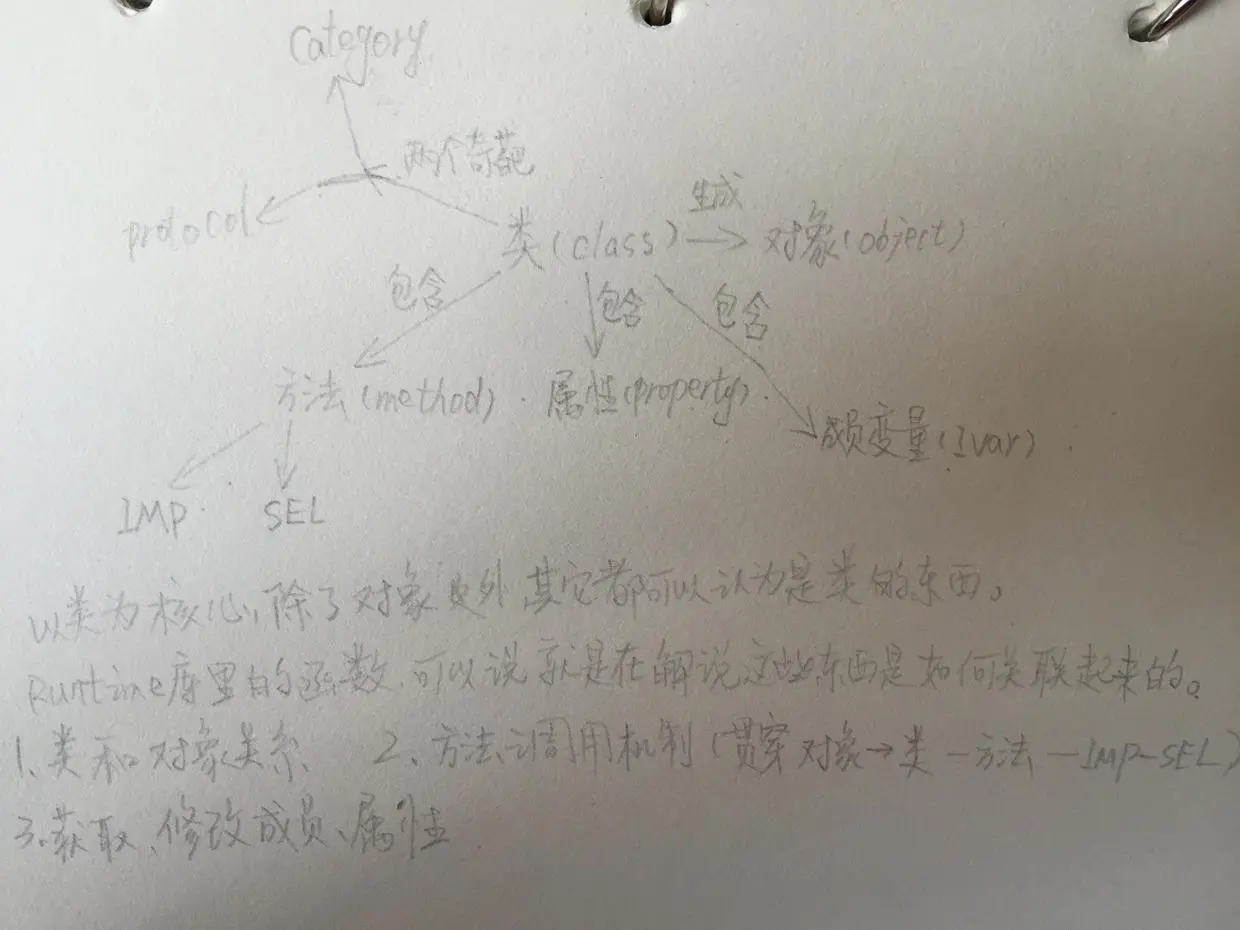 Category
两个奇葩
protocol
生成
类(class) 对象(object)
包含 包含 包含
方法(method). 属性(property).
成员变量(Ivar).
IMP. SEL
以类为核心,除了对象以外其它都可以认为是类的东西。
Runtime库里的函数,可以说就是在解说这些东西是如何关联起来的。
1、类和对象关系 2、方法调用机制(贯穿对象→类-方法-IMP-SEL)
3.获取、修改成员、属性